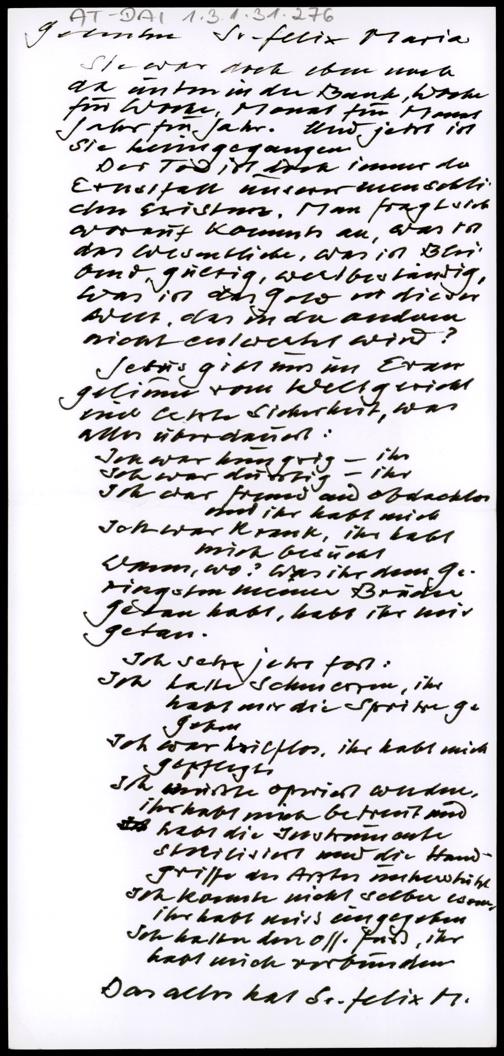 AT-DAI 1.3.1.31.276
Gedenken Sr. Felix Maria
Sie war doch eben noch
da unten in der Bank, Woche
für Woche, Monat für Monat
Jahr für Jahr. Und jetzt ist
sie heimgegangen
Der Tod ist doch immer der
Ernstfall unserer menschli
chen Existenz. Man fragt sich
worauf kommts an, was ist
das Wesentliche, was ist Blei
und gültig, wertbeständig,
was ist das Gold in dieser
Welt, das in der anderen
nicht entwertet wird?
Jesus gibt uns im Evan
gelium vom Weltgericht
eine letzte Sicherheit, was
alles überdauert:
Ich war hungrig – ihr
Ich war durstig – ihr
Ich war fremd und obdachlos
und ihr habt mich
Ich war krank, ihr habt
mich besucht
Wann, wo? Was ihr dem ge-
ringsten meiner Brüder
getan habt, habt ihr mir
getan.
Ich setze jetzt fort:
Ich hatte Schmerzen, ihr
habt mir die Spritze ge
geben
Ich war hilflos, ihr habt mich
gepflegt
Ich musste operiert werden,
ihr habt mich betreut und
habt die Instrumente
sterilisiert und die Hand-
griffe des Arztes unterstützt
Ich konnte nicht selber essen,
ihr habt mirs eingegeben
Ich hatte den off. Fuß, ihr
habt mich verbunden
Das alles hat Sr. Felix M.